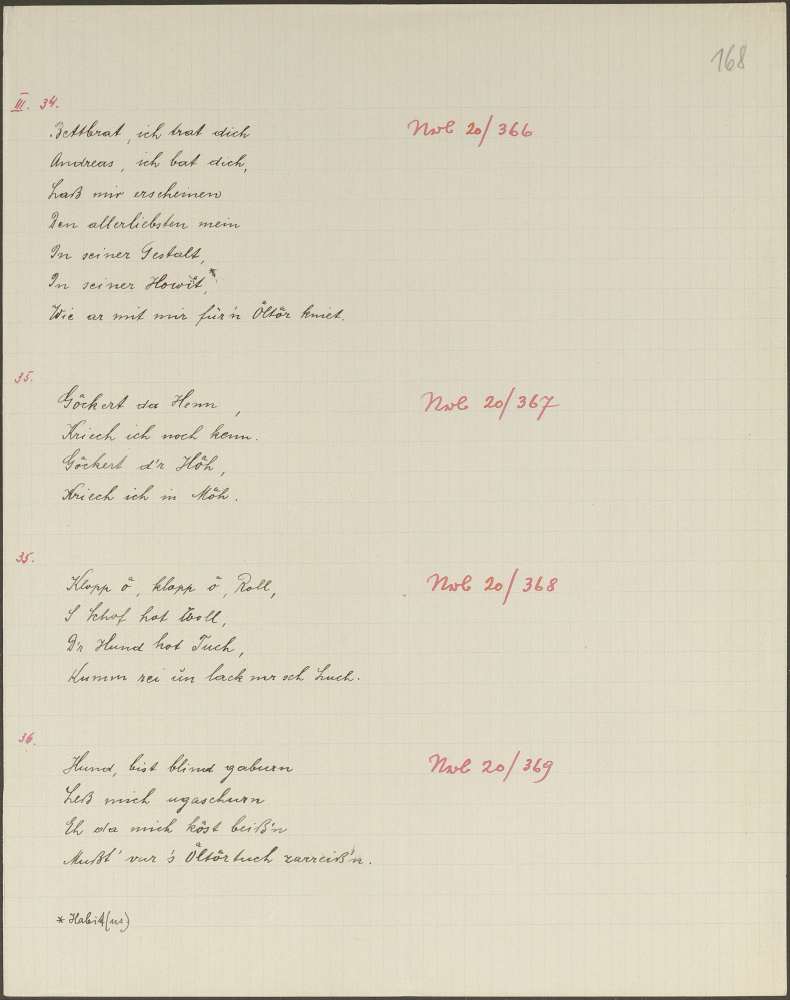 168
III. 34.
Bettbrat, ich trat dich
Nwb 20/366
Andreas, ich bat dich,
Laß mir erscheinen
Den allerliebsten mein
In seiner Gestalt,
In seiner Howit,*
Wie ar mit mir für'n Öltör kniet.
35.
Göckert da Henn,
Nwb 20/367
Kriech ich noch kenn.
Göckert d'r Höh,
Kriech ich in Möh.
35.
Klopp ö, klopp ö, Roll,
Nwb 20/368
S Schof hot Woll,
D'r Hund hot Tuch,
Kumm rei ün lack mr och Luch.
36.
Hund, bist blind gaburn
Nwb 20/369
Leß mich ugaschurn
Eh da mich köst beiß'n
Mußt' vur's Öltörtuch zarreiß'n.
* Habit(us)